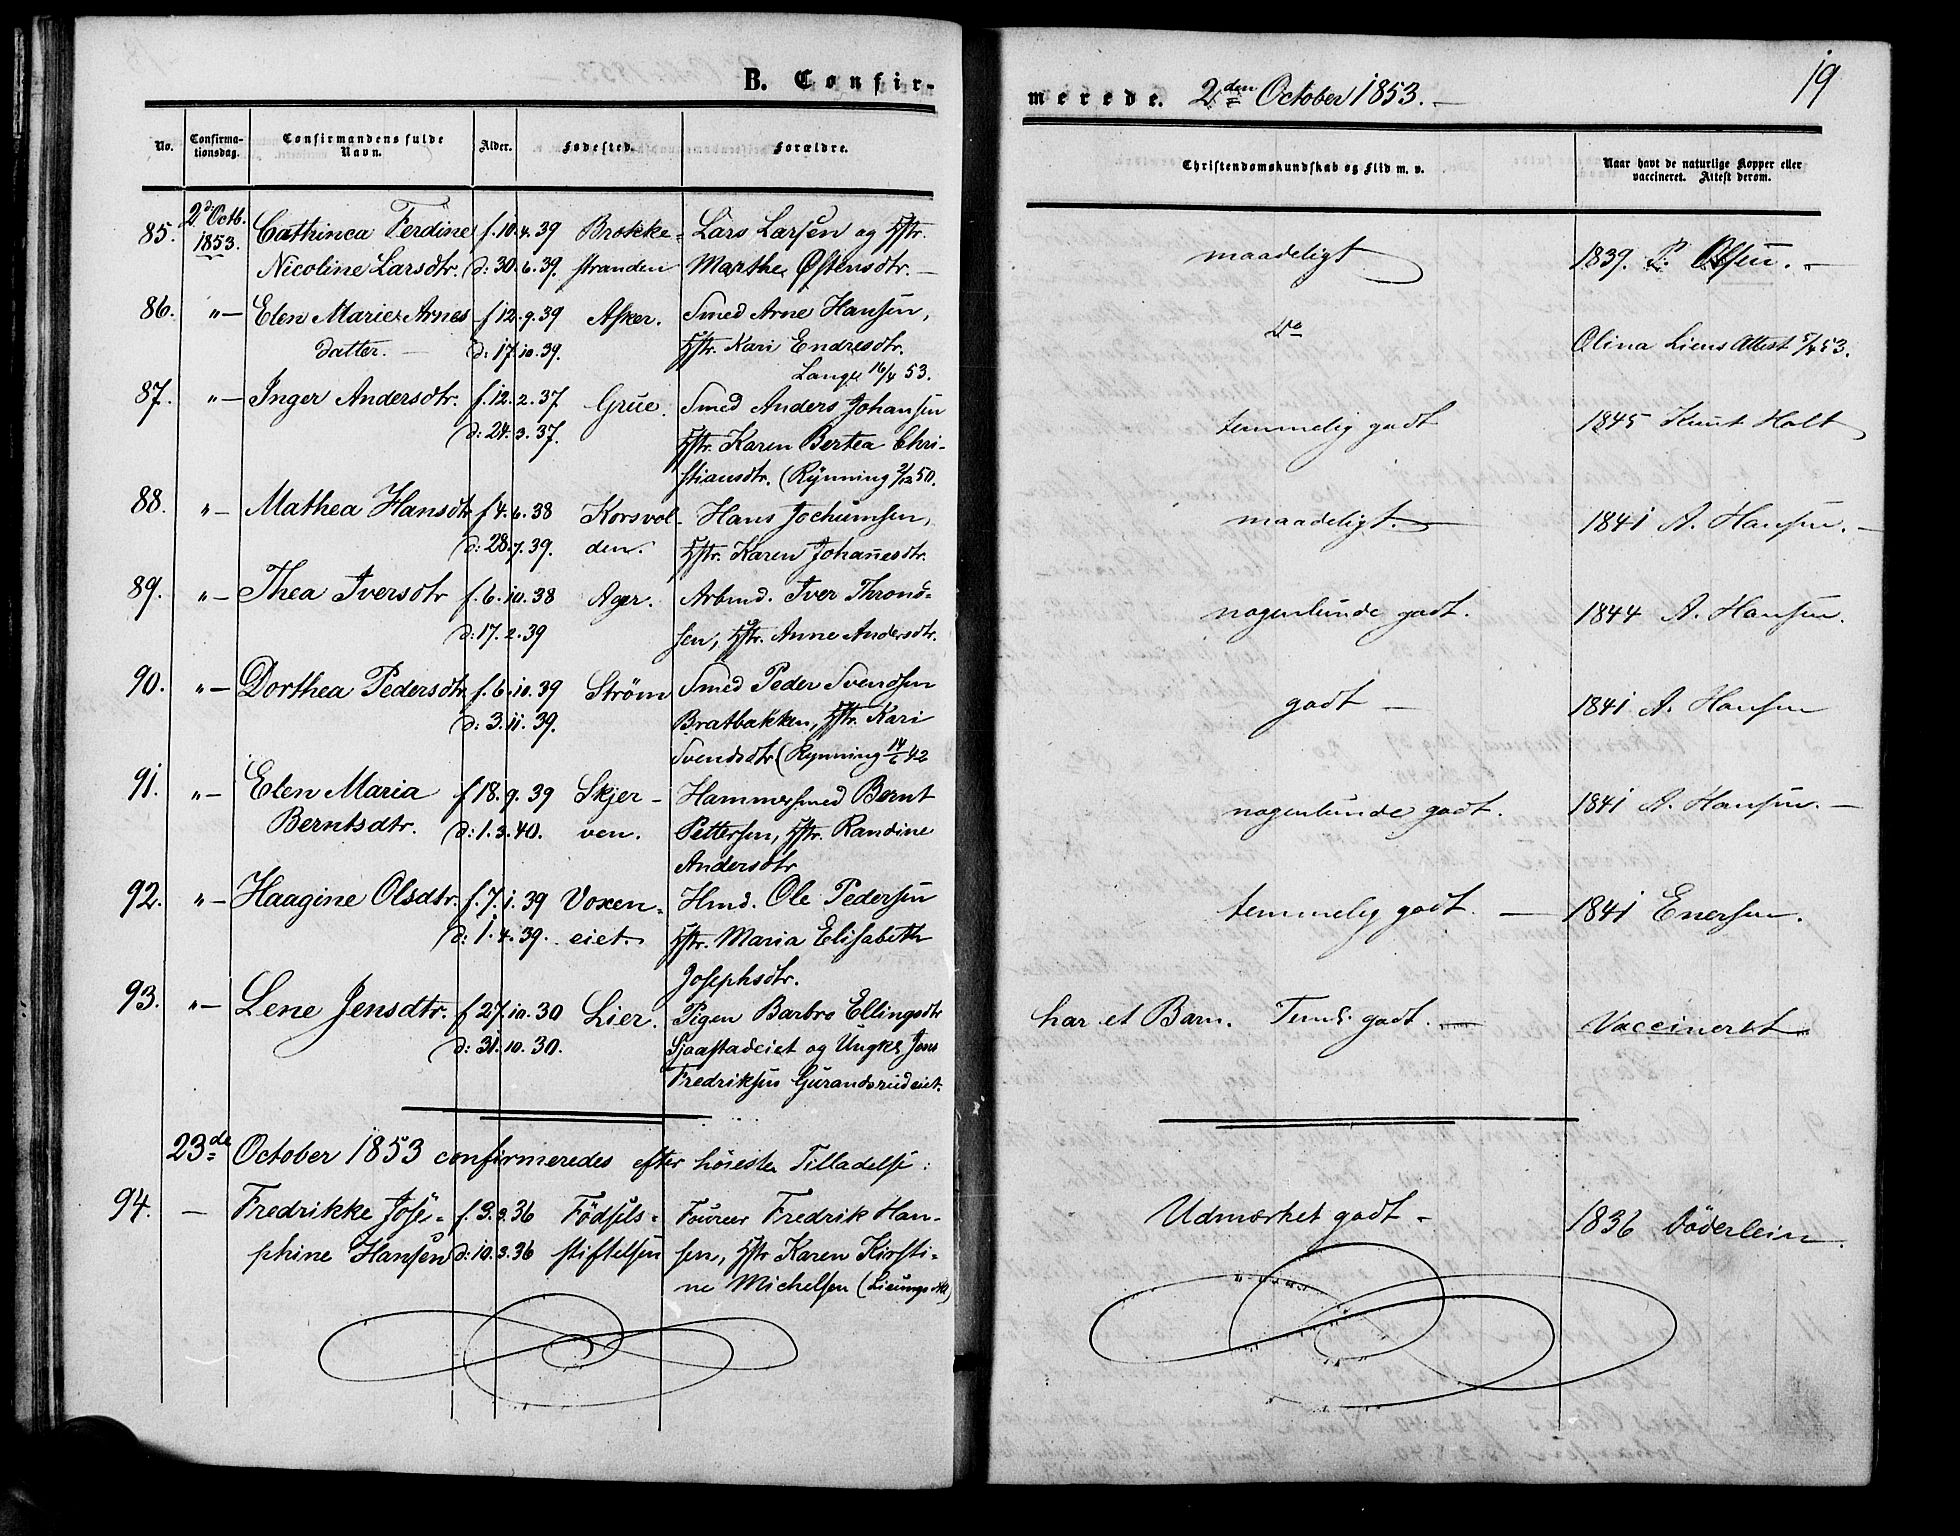 B. Confir-
No. Confirma-tionsdag. Confirmandens fulde Navn. Alder. Fødested. Forældre.
85. 2d Octb. 1853. Cathinca Ferdine f. 10.4.39 Brokke- Lars Larsen og Hstr.
Nicoline Larsdtr. d: 30.6.39. stranden Marthe Østensdtr. —
86. " — Elen Marie Arnes f 12.9.39 Asker. Smed Arne Hansen,
datter. — d: 17.10.39. Hstr. Kari Endresdtr.
Lange 16/4 53.
87. " — Inger Andersdtr. f. 12.2.37 Grue. Smed Anders Johansen
d: 24.3.37. Hstr. Karen Bertea Chri-
stiansdtr. (Rynning 2/12 50.
88. " — Mathea Hansdtr f 4.6.38 Korsvol- Hans Jochumsen,
d: 28.7.39. den. Hstr. Karen Johanesdtr.
89. " — Thea Iversdtr f. 6.10.38 Ager. Arbmd. Iver Thrond-
d: 17.2.39 sen, Hstr. Anne Andersdtr.
90. " — Dorthea Pedersdtr f. 6.10.39 Strøm Smed Peder Svendsen
d: 3.11.39. Bratbakken, Hstr. Kari
Svendsdtr (Rynning 14/6 42
91. " — Elen Maria f 18.9.39 Skjer- Hammersmed Bernt
Berntsdtr. d: 1.3.40. ven. Pettersen, Hstr. Randine
Andersdtr
92. " — Haagine Olsdtr. f. 7.1.39 Voxen- Hmd. Ole Pedersen
d: 1.4.39. eiet. Hstr. Maria Elisabeth
Josephsdtr.
93. " — Lene Jensdtr. f 27.10.30 Lier. Pigen Barbro Ellingsdtr
d: 31.10.30. Sjaastadeiet og Ungkl Jens
Fredriksen Gurandsrudeiet.
23de October 1853 confirmeredes efter høieste Tilladelse:
94. — Fredrikke Jose- f. 3.3.36 Födsels- Foureer Fredrik Han-
phine Hansen d: 10.3.36 stiftelsen sen, Hstr Karen Kirsti-
ne Michelsen
merede. 2den October 1853. —
19
Christendomskundskab og Flid m. v. Naar havt de naturlige Kopper eller
vaccineret. Attest derom.
maadeligt 1839. P. Olsen. —
Do Olina Liens Attest 5/4 53.
temmelig godt 1845 Knut Holt
maadeligt. — 1841 A. Hansen. —
nogenlunde godt. 1844 A. Hansen.
godt — 1841 A. Hansen
nogenlunde godt. 1841 A. Hansen. —
temmelig godt. — 1841 Enersen.
har et Barn. Teml. godt. — Vaccineret
Udmærket godt — 1836 Döderlein.